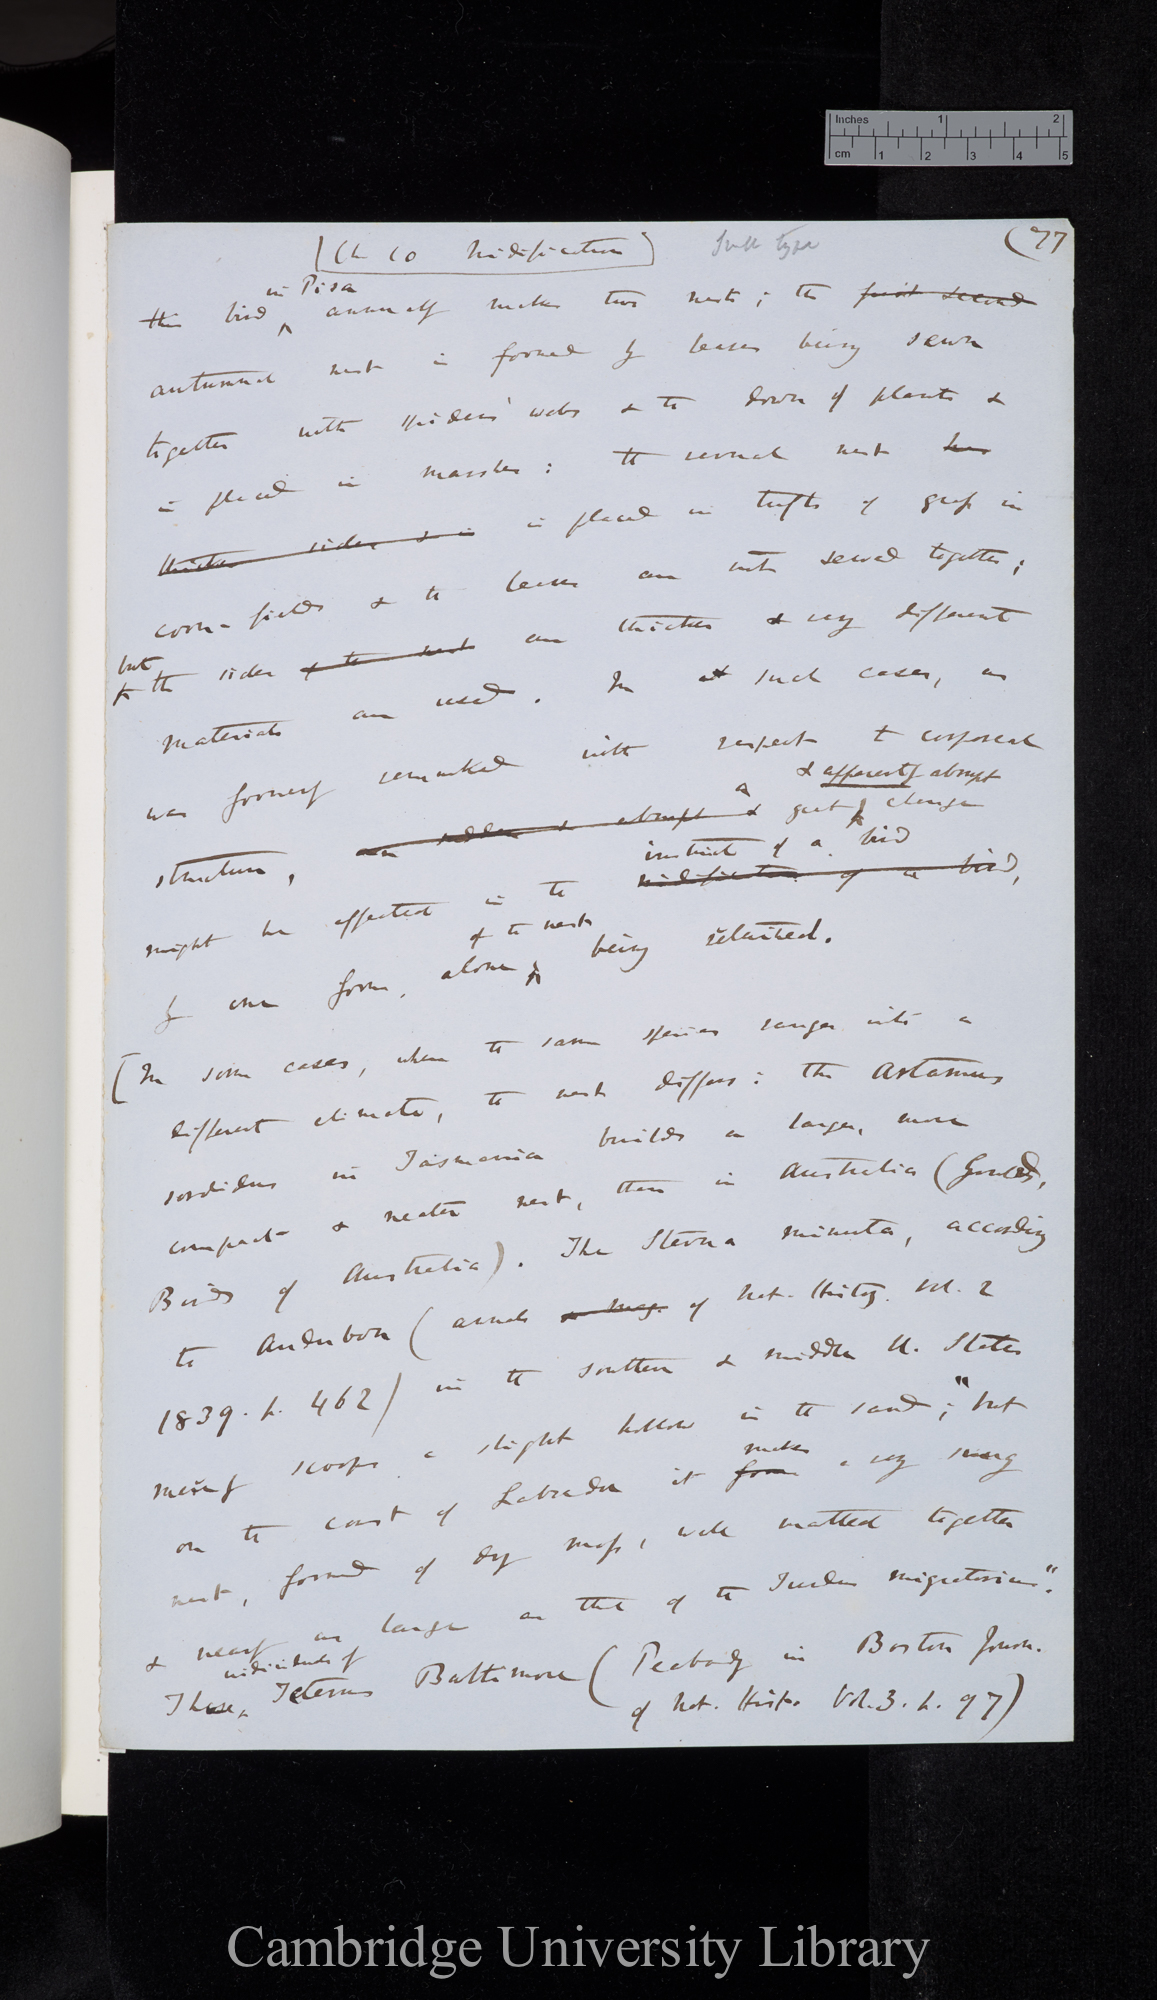 Inches 1 2
cm 1 2 3 4 5
(Ch 10 Nidification) (77
in Pisa
this bird annually makes two nests; the first second
autumnal nest is formed by leaves being sewn
together with spiders' webs & the down of plants &
is placed in marshes: the vernal nest has
thicker sides & is is placed in tufts of grass in
corn-fields & the leaves are not sewed together;
but
the sides & the nest are thicker & very different
materials are used. In such cases, as
was formerly remarked with respect to corporeal
& apparently abrupt
structure, a sudden & abrupt & a great change
instinct of a bird
might be effected in the nidification of a bird,
of the nests
by one form, alone being retained.
[In some cases, when the same species ranges into a
different climate, the nest differs: the Artamus
sordidus in Tasmania builds a larger, more
compact & neater nest, than in Australia (Gould's,
Birds of Australia). The Sterna minuta, according
to Audubon (Annals & Mag. of Nat. History. vol. 2
1839. p. 462) in the southern & middle U. States
merely scoops a slight hollow in the sand; "but
makes
on the coast of Labrador it forms a very snug
nest, formed of dry moss, well matted together
& nearly as large as that of the Turdus migratorius".
individuals of
Those Icterus Baltimore (Peabody in Boston Journ.
of Nat. Hist. Vol. 3. p. 97)
Cambridge University Library